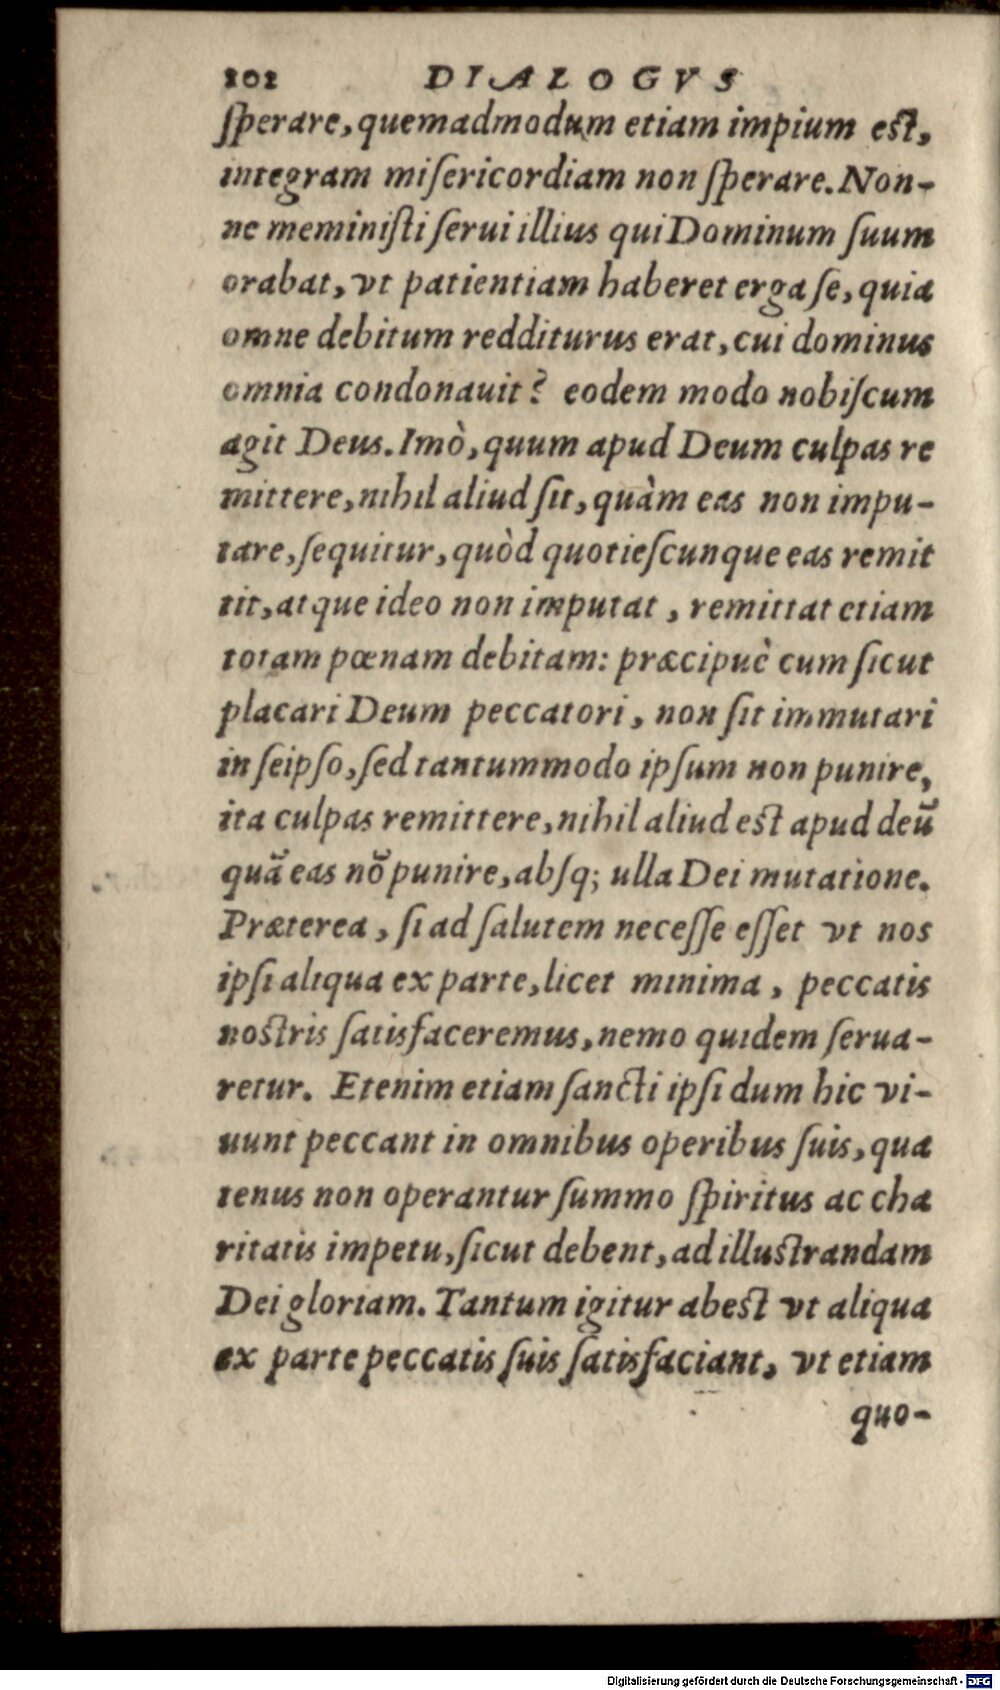 202 DIALOGVS
ſperare, quemadmodum etiam impium eſt,
integram miſericordiam non ſperare. Non-
ne meminiſti ſerui illius qui Dominum ſuum
orabat, vt patientiam haberet erga ſe, quia
omne debitum redditurus erat, cui dominus
omnia condonauit? eodem modo nobiſcum
agit Deus. Imò, quum apud Deum culpas re
mittere, nihil aliud ſit, quàm eas non impu-
tare, ſequitur, quòd quotieſcunque eas remit
tit, atque ideo non imputat, remittat etiam
totam pœnam debitam: præcipuè cum ſicut
placari Deum peccatori, non ſit immutari
in ſeipſo, ſed tantummodo ipſum non punire,
ita culpas remittere, nihil aliud eſt apud deũ
quã eas nõ punire, abſq; ulla Dei mutatione.
Præterea, ſi ad ſalutem neceſſe eſſet vt nos
ipſi aliqua ex parte, licet minima, peccatis
noſtris ſatisfaceremus, nemo quidem ſerua-
retur. Etenim etiam ſancti ipſi dum hic vi-
uunt peccant in omnibus operibus ſuis, qua
tenus non operantur ſummo ſpiritus ac cha
ritatis impetu, ſicut debent, ad illuſtrandam
Dei gloriam. Tantum igitur abeſt vt aliqua
ex parte peccatis ſuis ſatisfaciant, vt etiam
quo-
Digitalisierung gefördert durch die Deutsche Forschungsgemeinschaft - DFG